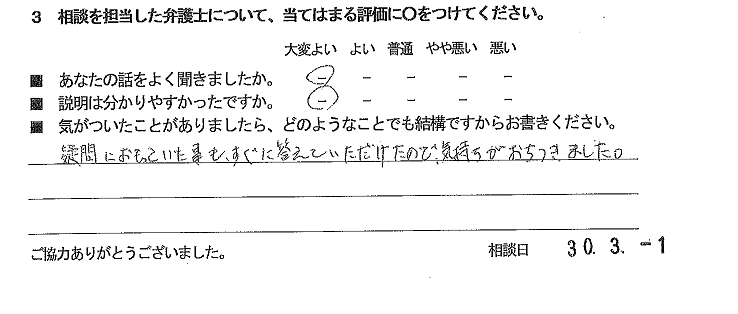 3 相談を担当した弁護士について、当てはまる評価に〇をつけてください。
大変よい よい 普通 やや悪い 悪い
■ あなたの話をよく聞きましたか。 - - - - -
■ 説明は分かりやすかったですか。 - - - - -
■ 気がついたことがありましたら、どのようなことでも結構ですからお書きください。
疑問におもっていた事も、すぐに答えていただけたので、気持ちがおちつきました。
ご協力ありがとうございました。 相談日 30. 3. -1